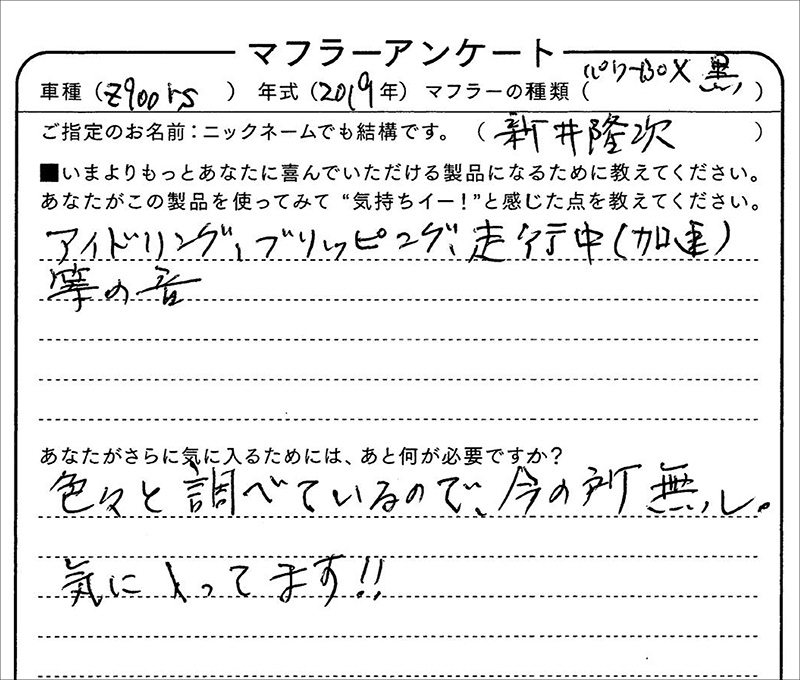 マフラーアンケート
車種(z900rs) 年式(2019年) マフラーの種類(パワーBOX 黒)
ご指定のお名前：ニックネームでも結構です。(新井隆次)
■いまよりもっとあなたに喜んでいただける製品になるために教えてください。
あなたがこの製品を使ってみて“気持ちイー！”と感じた点を教えてください。
アイドリング、ブリッピング、走行中(加速)
等の音
あなたがさらに気に入るためには、あと何が必要ですか？
色々と調べているので、今の所無し。
気に入ってます!!